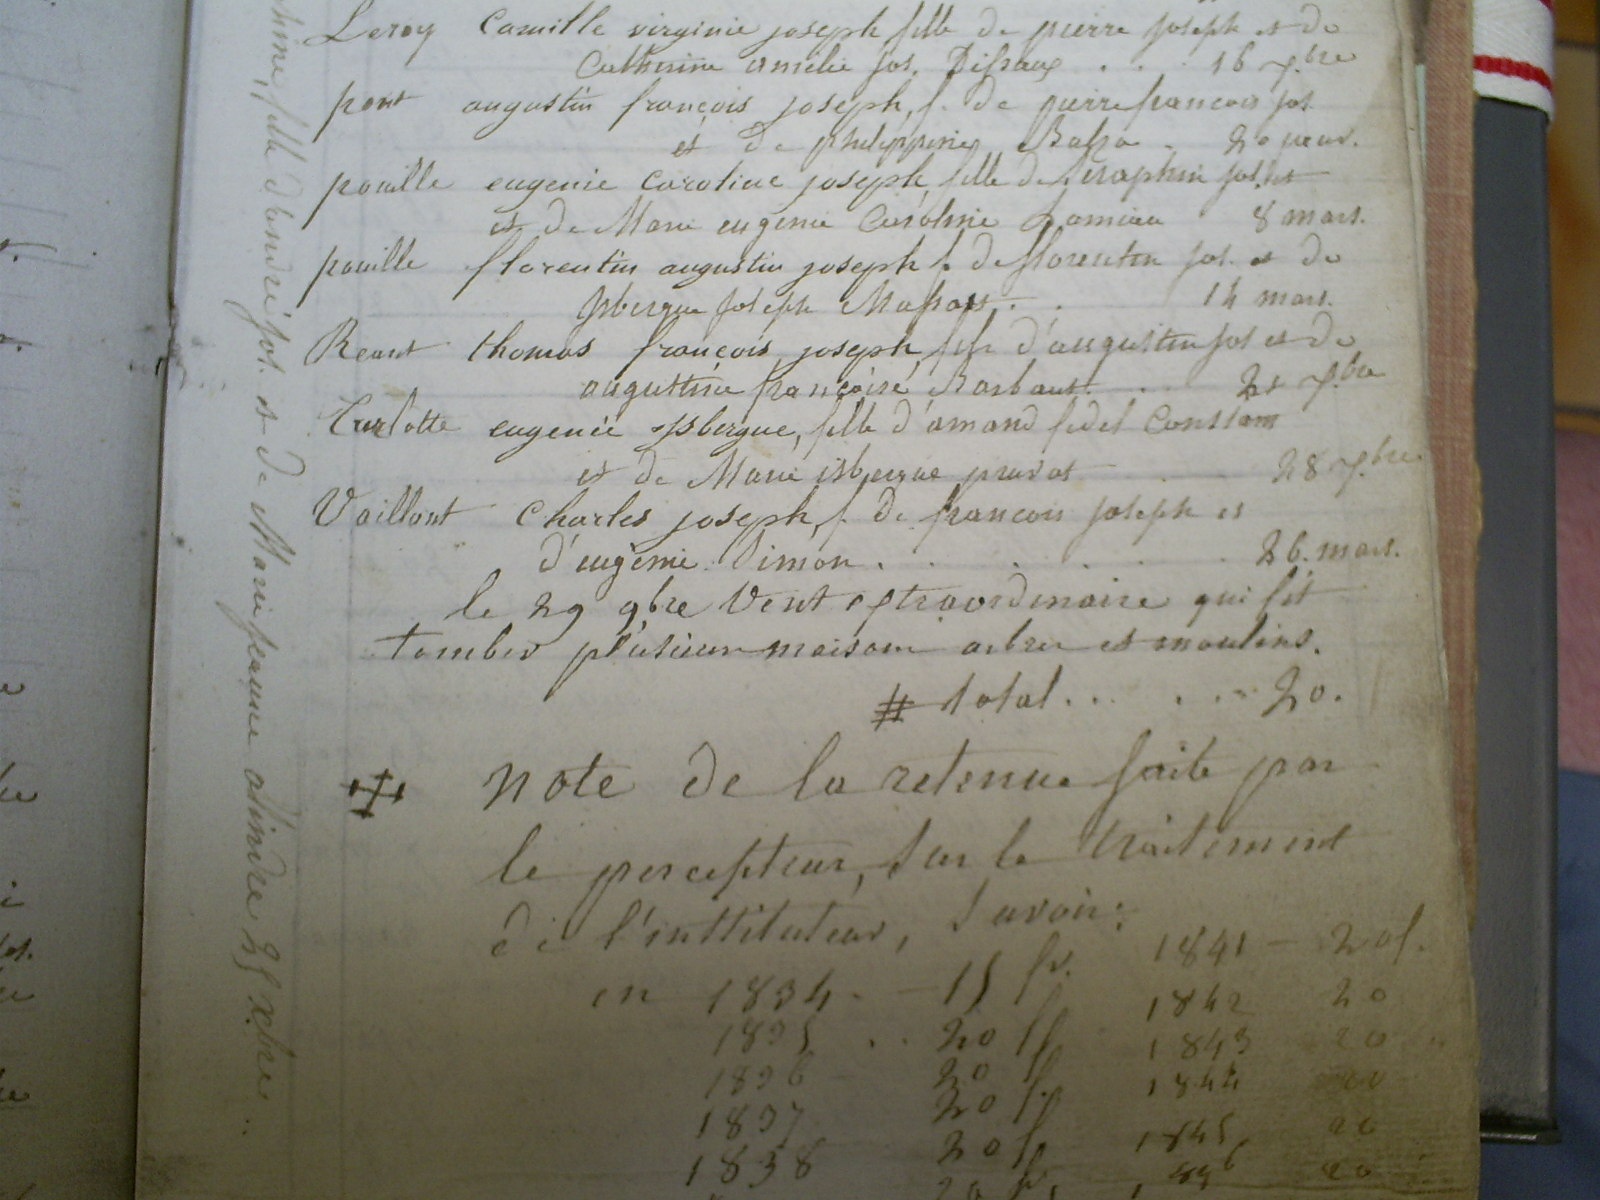 Leroy Camille virginie joseph fille de pierre joseph et de
Catherine amelie jos. Difsaux . . . 16 7.bre
pont augustin françois joseph, f. de pierre francois jos.
et de philippine Bafsa . 20 janv.
pouille eugenie Caroline joseph, fille de Seraphin jos.
et de Marie eugenie Caroline Lamiau 8 mars.
pouille florentin augustin joseph f. de florentin jos. et de
Isbergue joseph 14 mars.
Reant thomas françois joseph, fils d'augustin jos et de
augustine françoise Barbaut . . 7.bre
Turlotte eugenie Isbergue, fille d'amand fidel Constant
et de Marie isbergue pruvot . . 28 7.bre
Vaillant Charles joseph, f. de francois joseph et
d'eugenie Simon . . . . . 26. mars.
le 29 9bre Vent extraordinaire qui fit
tomber plusieur maison arbre et moulins.
# total . . . . . . 20.
note de la retenue faite par
le percepteur, sur le traitement
de l'instituteur, Savoir:
en 1834 . - 15 fr. 1841 - 20 f.
1835 . . 20 ff 1842 20
1836 20 ff 1843 20
1837 20 ff 1844 20
1838 20 ff 1845 20
20 20
fille d'andré jos. et de Marie jeanne 25 Xbre . .